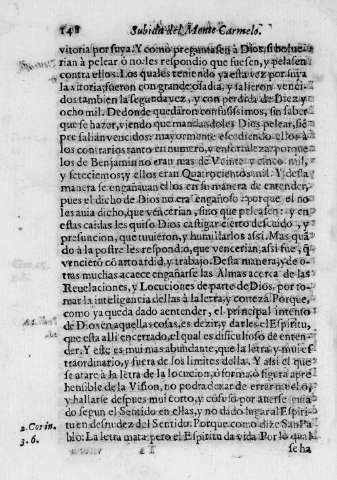 148 Subida del Monte Carmelo.
vitoria por suya. Y como preguntasen à Dios, si bolue-
rian à pelear ò no les respondio que fuesen, y pelasen
contra ellos. Los quales teniendo ya esta vez por suya
la vitoria; fueron con grande osadia, y salieron venci-
dos tambien la segunda vez, y con perdida de Diez y
ocho mil. De donde quedaron confusisimos, sin saber
que se hazer, viendo que mandandoles Dios pelear, siē
pre salian vencidos: mayormente escediendo ellos à
los contrarios tanto en numero, y enfortaleza: porque
los de Benjamin no eran mas de Veinte y cinco mil,
y setecientos; y ellos eran Quatrocientos mil. Y desta
manera se engañauan ellos en su manera de entender,
pues el dicho de Dios no era engañoso: porque el no
les auia dicho, que vencerian, sino que peleasen: y en
estas caidas les quiso Dios castigar cierto descuido, y
presuncion, que tuuieron, y humillarlos assi. Mas quā
do à la postre les respondio, que vencerian, assi fue, q̄
venciero cō arto ardid, y trabajo. Desta manera, y de o-
tras muchas acaece engañarse las Almas acerca de las
Reuelaciones, y Locuciones de parte de Dios, por to-
mar la inteligencia dellas à la letra, y corteza. Porque,
como ya queda dado aentender, el principal intento
de Dios en aquellas cosas, es dezir, y darles el Espiritu,
que esta alli encerrado, el qual es dificultoso de enten-
der. Y este es mui mas abundante, que la letra, y mui es-
traordinario, y fuera de los limites della. Y assi el que
se atare à la letra de la locucion, ò forma, ò figura apre
hensible de la Vision, no podra dexar de errar mucho,
y hallarse despues mui corto, y confuso por auerse guia
do segun el Sentido en ellas, y no dado lugar al Espiri-
2. Corin. tu en desnudez del Sentido. Porque como dize San Pa
3. 6. blo: La letra mata, pero el Espiritu da vida. Por lo qual
se ha